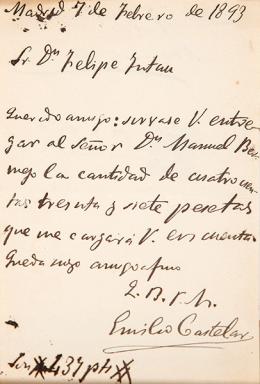 Madrid 7 de Febrero de 1893
Sr Dn Felipe
Querido amigo: sirvase V. entre
gar al Señor Dn Manuel Ben
ngo la cantidad de cuatrocien
tas treinta y siete pesetas
que me cargará V. en cuenta.
Queda suyo amigo afmo
Q. B. S. M.
Emilio Castelar
Son #437 pts#